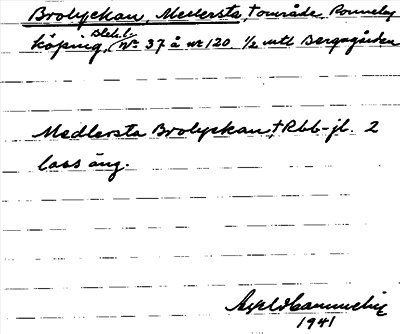 Brolyckan, Medlersta, † område, Ronneby
köping, Blek.l. Nr 37 å nr 120 1/2 mtl Bergsgården
Medlersta Brolyckan, † Rbb-jl. 2
lass äng.
Axel
1941